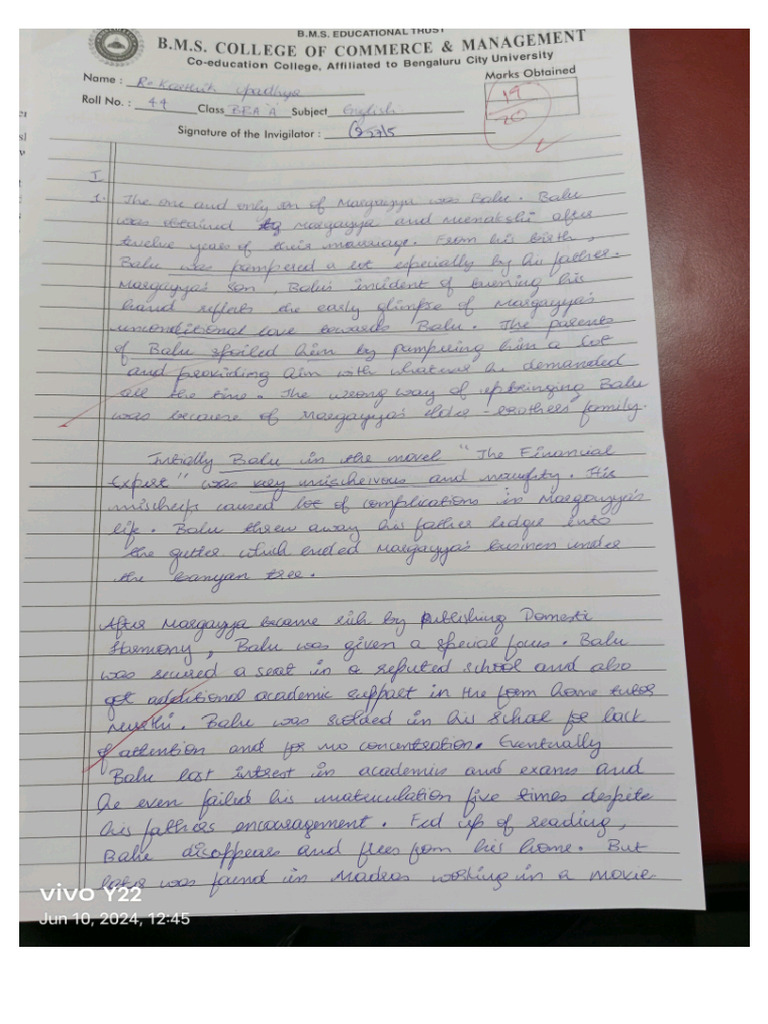 B.M.S. EDUCATIONAL TRUST
B.M.S. COLLEGE OF COMMERCE & MANAGEMENT
Co-education College, Affiliated to Bengaluru City University
Name : R. Karthik Upadhya
Marks Obtained
Roll No. : 49 Class BBA 'A' Subject English
19
20
Signature of the Invigilator :
I
1. The one and only son of Margayya was Balu. Balu
was obtained to Margayya and Meenakshi after
twelve years of their marriage. From his birth,
Balu was pampered a lot especially by his father.
Margayya's son, Balu's incident of burning his
hand reflects the early glimpse of Margayya's
unconditional love towards Balu. The parents
of Balu spoiled him by pampering him a lot
and providing him with whatever he demanded
all the time. The wrong way of upbringing Balu
was because of Margayya's elder-brothers' family.
Initially Balu in the novel "The Financial
Expert" was very mischeivous and naughty. His
mischeifs caused lot of complications in Margayya's
life. Balu threw away his father ledger into
the gutter which ended Margayya's business under
the banyan tree.
After Margayya became rich by publishing Domestic
Harmony, Balu was given a special focus. Balu
was secured a seat in a reputed school and also
got additional academic support in the form home tutor
Murthi. Balu was scolded in his school for lack
of attention and for no concentration. Eventually
Balu lost interest in academics and exams and
he even failed his matriculation five times despite
his fathers encouragement. Fed up of reading,
Balu disappears and flees from his home. But
later was found in Madras working in a movie
vivo Y22
Jun 10, 2024, 12:45